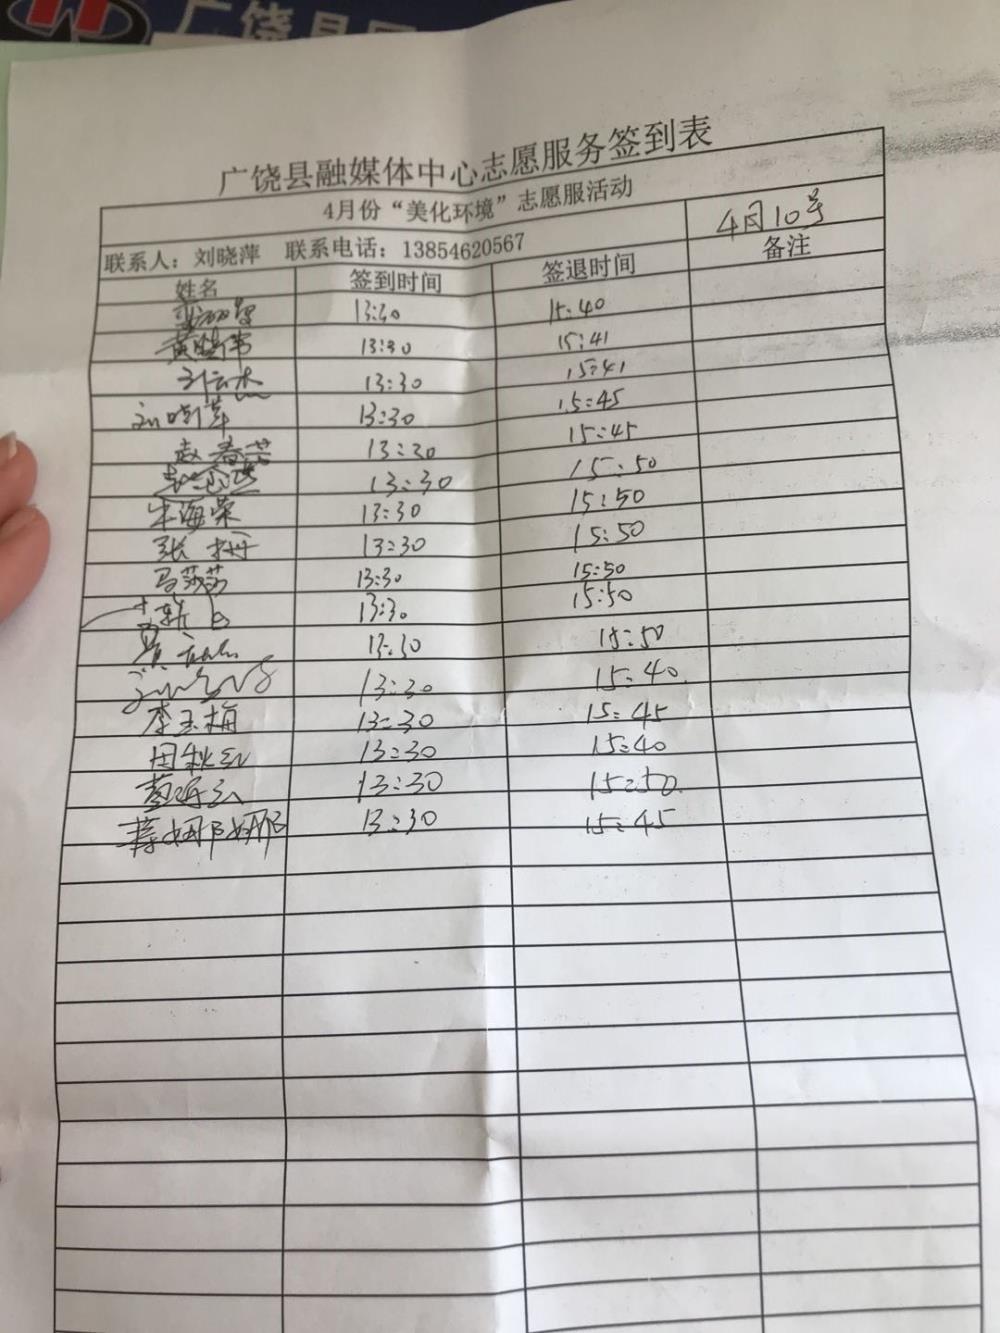 广饶县融
广饶县融媒体中心志愿服务签到表
4月份“美化环境”志愿服活动 4月10号
联系人：刘晓萍 联系电话：13854620567
姓名 签到时间 签退时间 备注
13:30 15:40
黄晓伟 13:30 15:41
13:30 15:41
刘晓萍 13:30 15:45
赵春芸 13:30 15:45
13:30 15:50
牛海荣 13:30 15:50
张丹 13:30 15:50
马莎莎 13:30 15:50
13:30 15:50
13:30 15:50
13:30 15:40
李玉梅 13:30 15:45
田秋红 13:30 15:40
13:30 15:50
娜娜 13:30 15:45